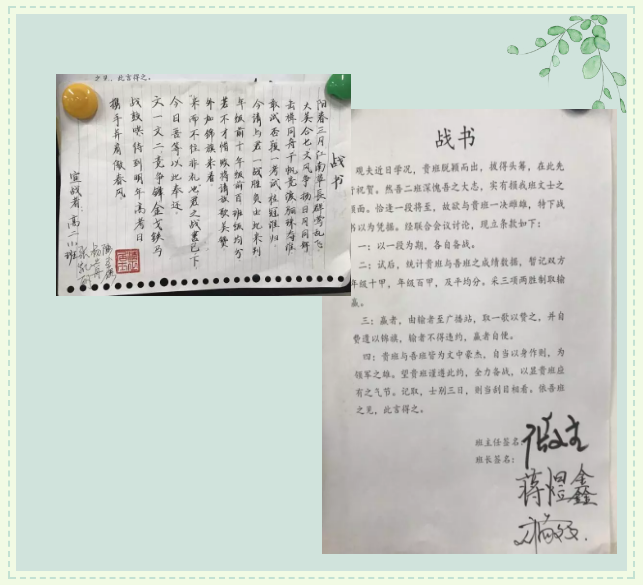 之见，此言得之。
战书
阳春三月江南草长群莺乱飞
今请与君一战胜负由此来判
年级前十年级前百班级均分
若不才惜败将请放歌美赞
外加锦旗来着
来而不往非礼也君之战书已下
今日吾等以此奉还
文一文二竞争锋金戈铁马
到明年高考日
携手并肩傲春风
宣战者 高二
班
战书
观夫近日学况，贵班脱颖而出，拔得头筹，在此先
行祝贺。然吾二班深愧吾之大志，实有损我班文士之
颜面。恰逢一段将至，故欲与贵班一决雌雄，特下战
书以为凭据。经联合会议讨论，现立条款如下：
一：以一段为期，各自备战。
二：试后，统计贵班与吾班之成绩数据，暂记双方
年级十甲，年级百甲，及平均分。采三项两胜制取输
赢。
三：赢者，由输者至广播站，取一歌以赞之，并自
费遗以锦旗，输者不得违约，赢者自便。
四：贵班与吾班皆为文中豪杰，自当以身作则，为
领军之雄。望贵班谨遵此约，全力备战，以显贵班应
有之气节。记取，士别三日，则当刮目相看。依吾班
之见，此言得之。
班主任签名：
班长签名：
蒋煜鑫